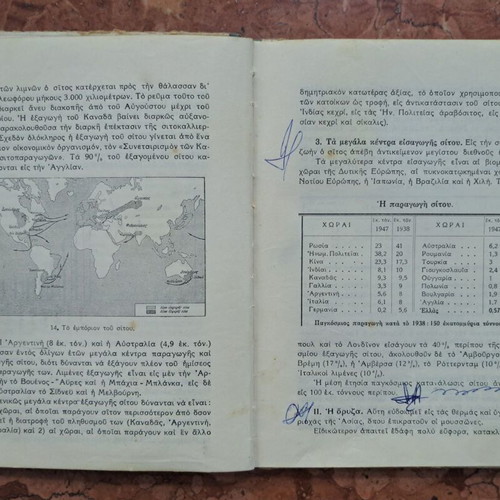 τῶν λιμνῶν ὁ σῖτος κατέρχεται πρὸς τὴν θάλασσαν δι'
λεωφόρου μήκους 3.000 χιλιομέτρων. Τὸ ρεῦμα τοῦτο τοῦ
διαρκεῖ ἄνευ διακοπῆς ἀπὸ τοῦ Αὐγούστου μέχρι τοῦ
ίου. Ἡ ἐξαγωγὴ τοῦ Καναδᾶ βαίνει διαρκῶς αὐξανο-
παρακολουθοῦσα τὴν διαρκῆ ἐπέκτασιν τῆς σιτοκαλλιερ-
Σχεδὸν ὁλόκληρος ἡ ἐξαγωγὴ τοῦ σίτου γίνεται ἀπὸ ἕνα
ιον οἰκονομικὸν ὀργανισμόν, τὸν «Συνεταιρισμὸν τῶν Κα-
Σιτοπαραγωγῶν». Τὰ 90% τοῦ ἐξαγομένου σίτου κα-
νται εἰς τὴν Ἀγγλίαν.
14. Τὸ ἐμπόριον τοῦ σίτου.
Ἀργεντινὴ (8 ἑκ. τόν.) καὶ ἡ Αὐστραλία (4,9 ἑκ. τόν.)
σαν ἐντὸς ὀλίγων ἐτῶν μεγάλα κέντρα παραγωγῆς καὶ
γῆς σίτου, διότι δύνανται νὰ ἐξάγουν πλέον τοῦ ἡμίσεος
παραγωγῆς των. Λιμένες ἐξαγωγῆς εἰς μὲν τὴν Ἀρ-
ὴν τὸ Βουένος - Ἄϋρες καὶ ἡ Μπάχια - Μπλάνκα, εἰς δὲ
στραλίαν τὸ Σίδνεϋ καὶ ἡ Μελβούρνη.
ενικῶς μεγάλα κέντρα ἐξαγωγῆς σίτου δύνανται νὰ εἶναι :
χῶραι, αἱ ὁποῖαι παράγουν σῖτον περισσότερον ἀπὸ ὅσον
εῖ ἡ διατροφὴ τοῦ πληθυσμοῦ των (Καναδᾶς, Ἀργεντινή,
αλία) καὶ 2) αἱ χῶραι, αἱ ὁποῖαι παράγουν καὶ ἓν ἄλλο
δημητριακὸν κατωτέρας ἀξίας, τὸ ὁποῖον χρησιμοποι
τῶν κατοίκων ὡς τροφή, εἰς ἀντικατάστασιν τοῦ σίτου
Ἰνδίας κεχρί, εἰς τὰς Ἡν. Πολιτείας ἀραβόσιτος, εἰς
σίαν κεχρὶ καὶ σίκαλις).
3. Τὰ μεγάλα κέντρα εἰσαγωγῆς σίτου. Εἰς τὴν σ
ζωὴν ὁ σῖτος ἀπέβη ἀντικείμενον μεγίστου διεθνοῦς ἐ
Τὰ μεγαλύτερα κέντρα εἰσαγωγῆς εἶναι αἱ βιομηχ
χῶραι τῆς Δυτικῆς Εὐρώπης, αἱ πυκνοκατῳκημέναι χ
Νοτίου Εὐρώπης, ἡ Ἰαπωνία, ἡ Βραζιλία καὶ ἡ Χιλή. Τ
Ἡ παραγωγὴ σίτου.
ΧΩΡΑΙ Ἑκ. τόν. 1947 1938 ΧΩΡΑΙ 194
Ρωσία 23 41 Αὐστραλία 6,2
Ἡνωμ. Πολιτεῖαι 38,2 20 Ρουμανία 1,3
Κίνα 23,3 17,3 Τουρκία 3
Ἰνδίαι 8,1 10 Γιουγκοσλαυία 2,4
Καναδᾶς 9,3 9,5 Οὑγγαρία
Γαλλία 3,3 9 Πολωνία 0,8
Ἀργεντινή 5,6 8 Βουλγαρία 1,9
Ἰταλία 6,1 8 Ἀγγλία 1,7
Γερμανία 0,2 5,6 Ἑλλάς 0,57
Παγκόσμιος παραγωγὴ κατὰ τὸ 1938 : 150 ἑκατομμύρια τόννοι
πουλ καὶ τὸ Λονδῖνον εἰσάγουν τὰ 40% περίπου τῆς
σμίου ἐξαγωγῆς σίτου, ἀκολουθοῦν δὲ τὸ Ἀμβοῦργον
Βρέμη (17%), ἡ Ἀμβέρσα (12%), τὸ Ρόττερνταμ (10
Ἰταλικοὶ λιμένες (10%).
Ἡ μέση ἐτησία παγκόσμιος κατανάλωσις σίτου ἀ
εἰς 100 ἑκ. τόννους περίπου.
II. Ἡ ὄρυζα. Αὕτη εὐδοκιμεῖ εἰς τὰς θερμὰς καὶ ὑγ
ριοχὰς τῆς Ἀσίας, ὅπου ἐπικρατοῦν οἱ μουσσῶνες.
Εἰδικώτερον ἀπαιτεῖ ἐδάφη πολὺ εὔφορα, κατακλυ